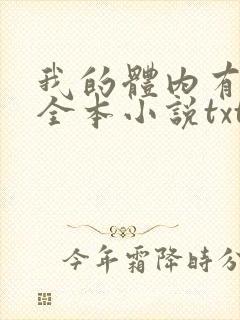 我的體內有
全本小説txt
今年霜降時分